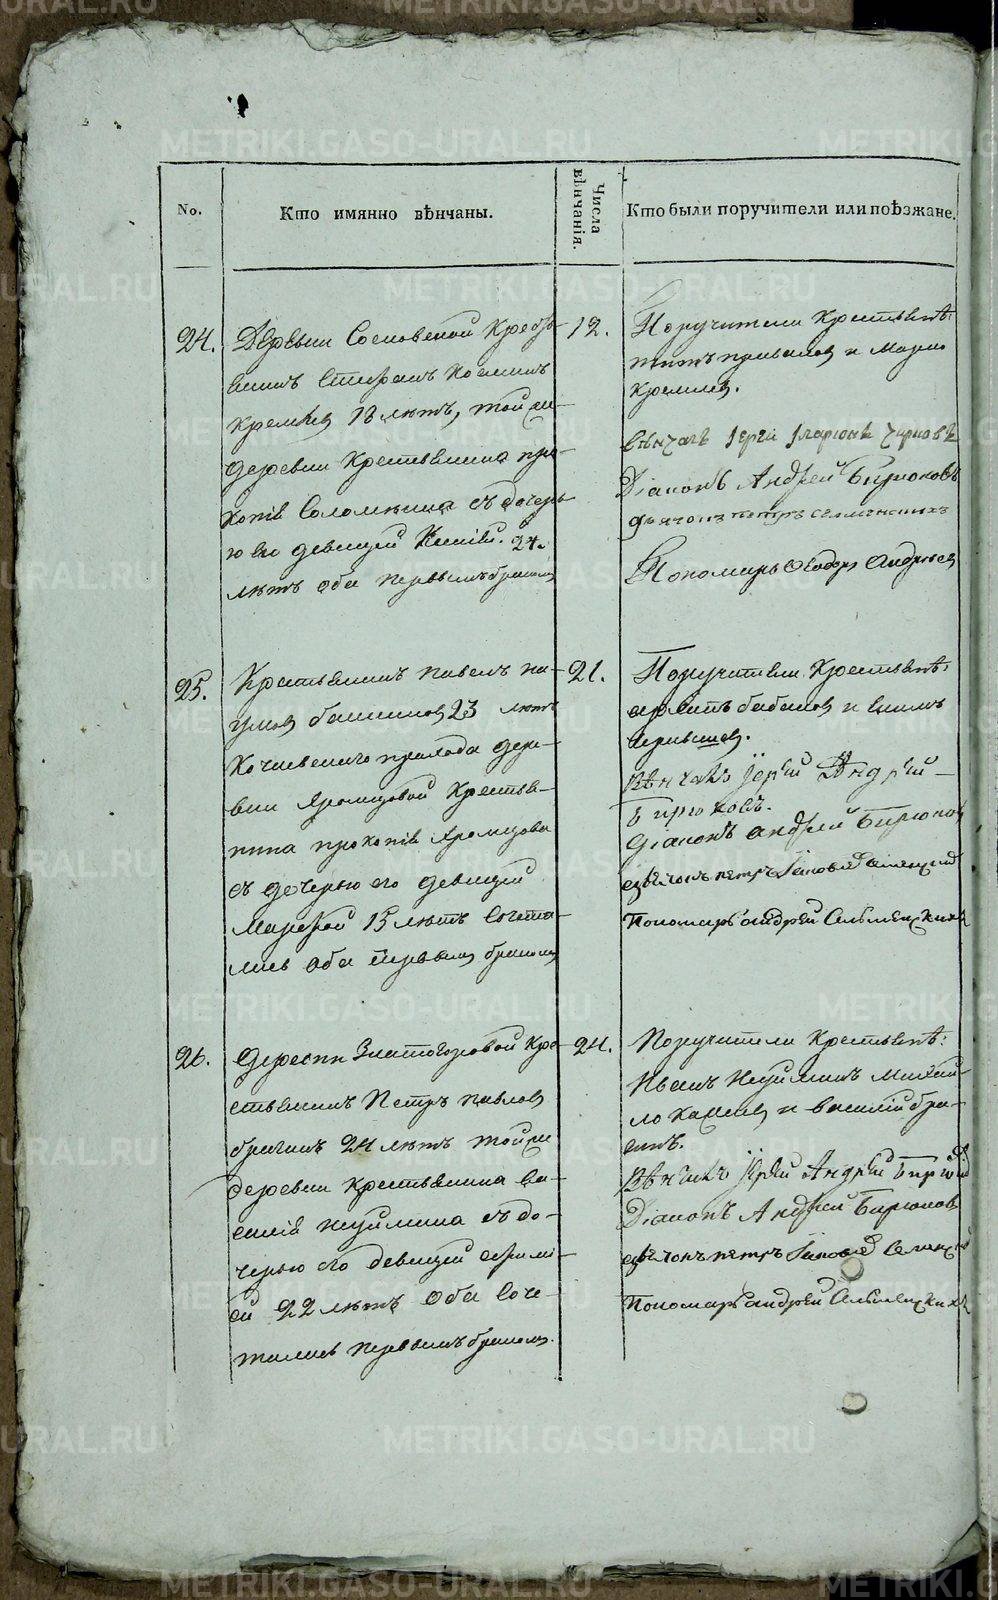 No.
Кто имянно вѣнчаны.
Числа вѣнчанія.
Кто были поручители или поѣзжане.
24.
Деревни Сосновской Кресть
янинъ Стефанъ Козминъ
Кремлев 18 лѣтъ, той же
деревни Крестьянина про-
копія Соломеина съ дочерь
ю его девицей 24.
лѣтъ оба первымъ браком
12.
Поручители Крестьянѣ:
и Марко
Кремлев.
Вѣнчалъ Іерей Иларіонъ Чирковъ
Діаконъ Андрей Бирюковъ
дьячокъ петръ селменскихъ
Пономарь Ѳеодоръ Андреев
25.
Крестьянинъ павелъ на-
умов 23 лѣтъ
Кочневского прихода дере-
вни Яромзовой Крестья-
нина прокопія Яромзова
съ дочерью его девицей
Марфой 15 лѣтъ Сочета-
лись Оба первым браком
21.
Поручители Крестьянѣ:
бабанов и
Вѣнчалъ Іерей Андрей
Бирюковъ.
Діаконъ андрей Бирюков
дьячокъ петръ
Пономарь андрей Селменскихъ
26.
деревни Златогоровой Кре
стьянинъ Петръ павлов
брагинъ 24 лѣтъ той же
деревни Крестьянина ва-
силія Неуймина съ до-
черью его девицей ефимі-
ей 22 лѣтъ Оба Соче-
тались первымъ браком.
24.
Поручители Крестьянѣ:
Иванъ Неуйминъ михай-
ло и василій бра-
гинъ.
Вѣнчалъ Іерей Андрей Бирюков
Діаконъ Андрей Бирюков
дьячокъ петръ
Пономарь андрей Селменскихъ
METRIKI.GASO-URAL.RU